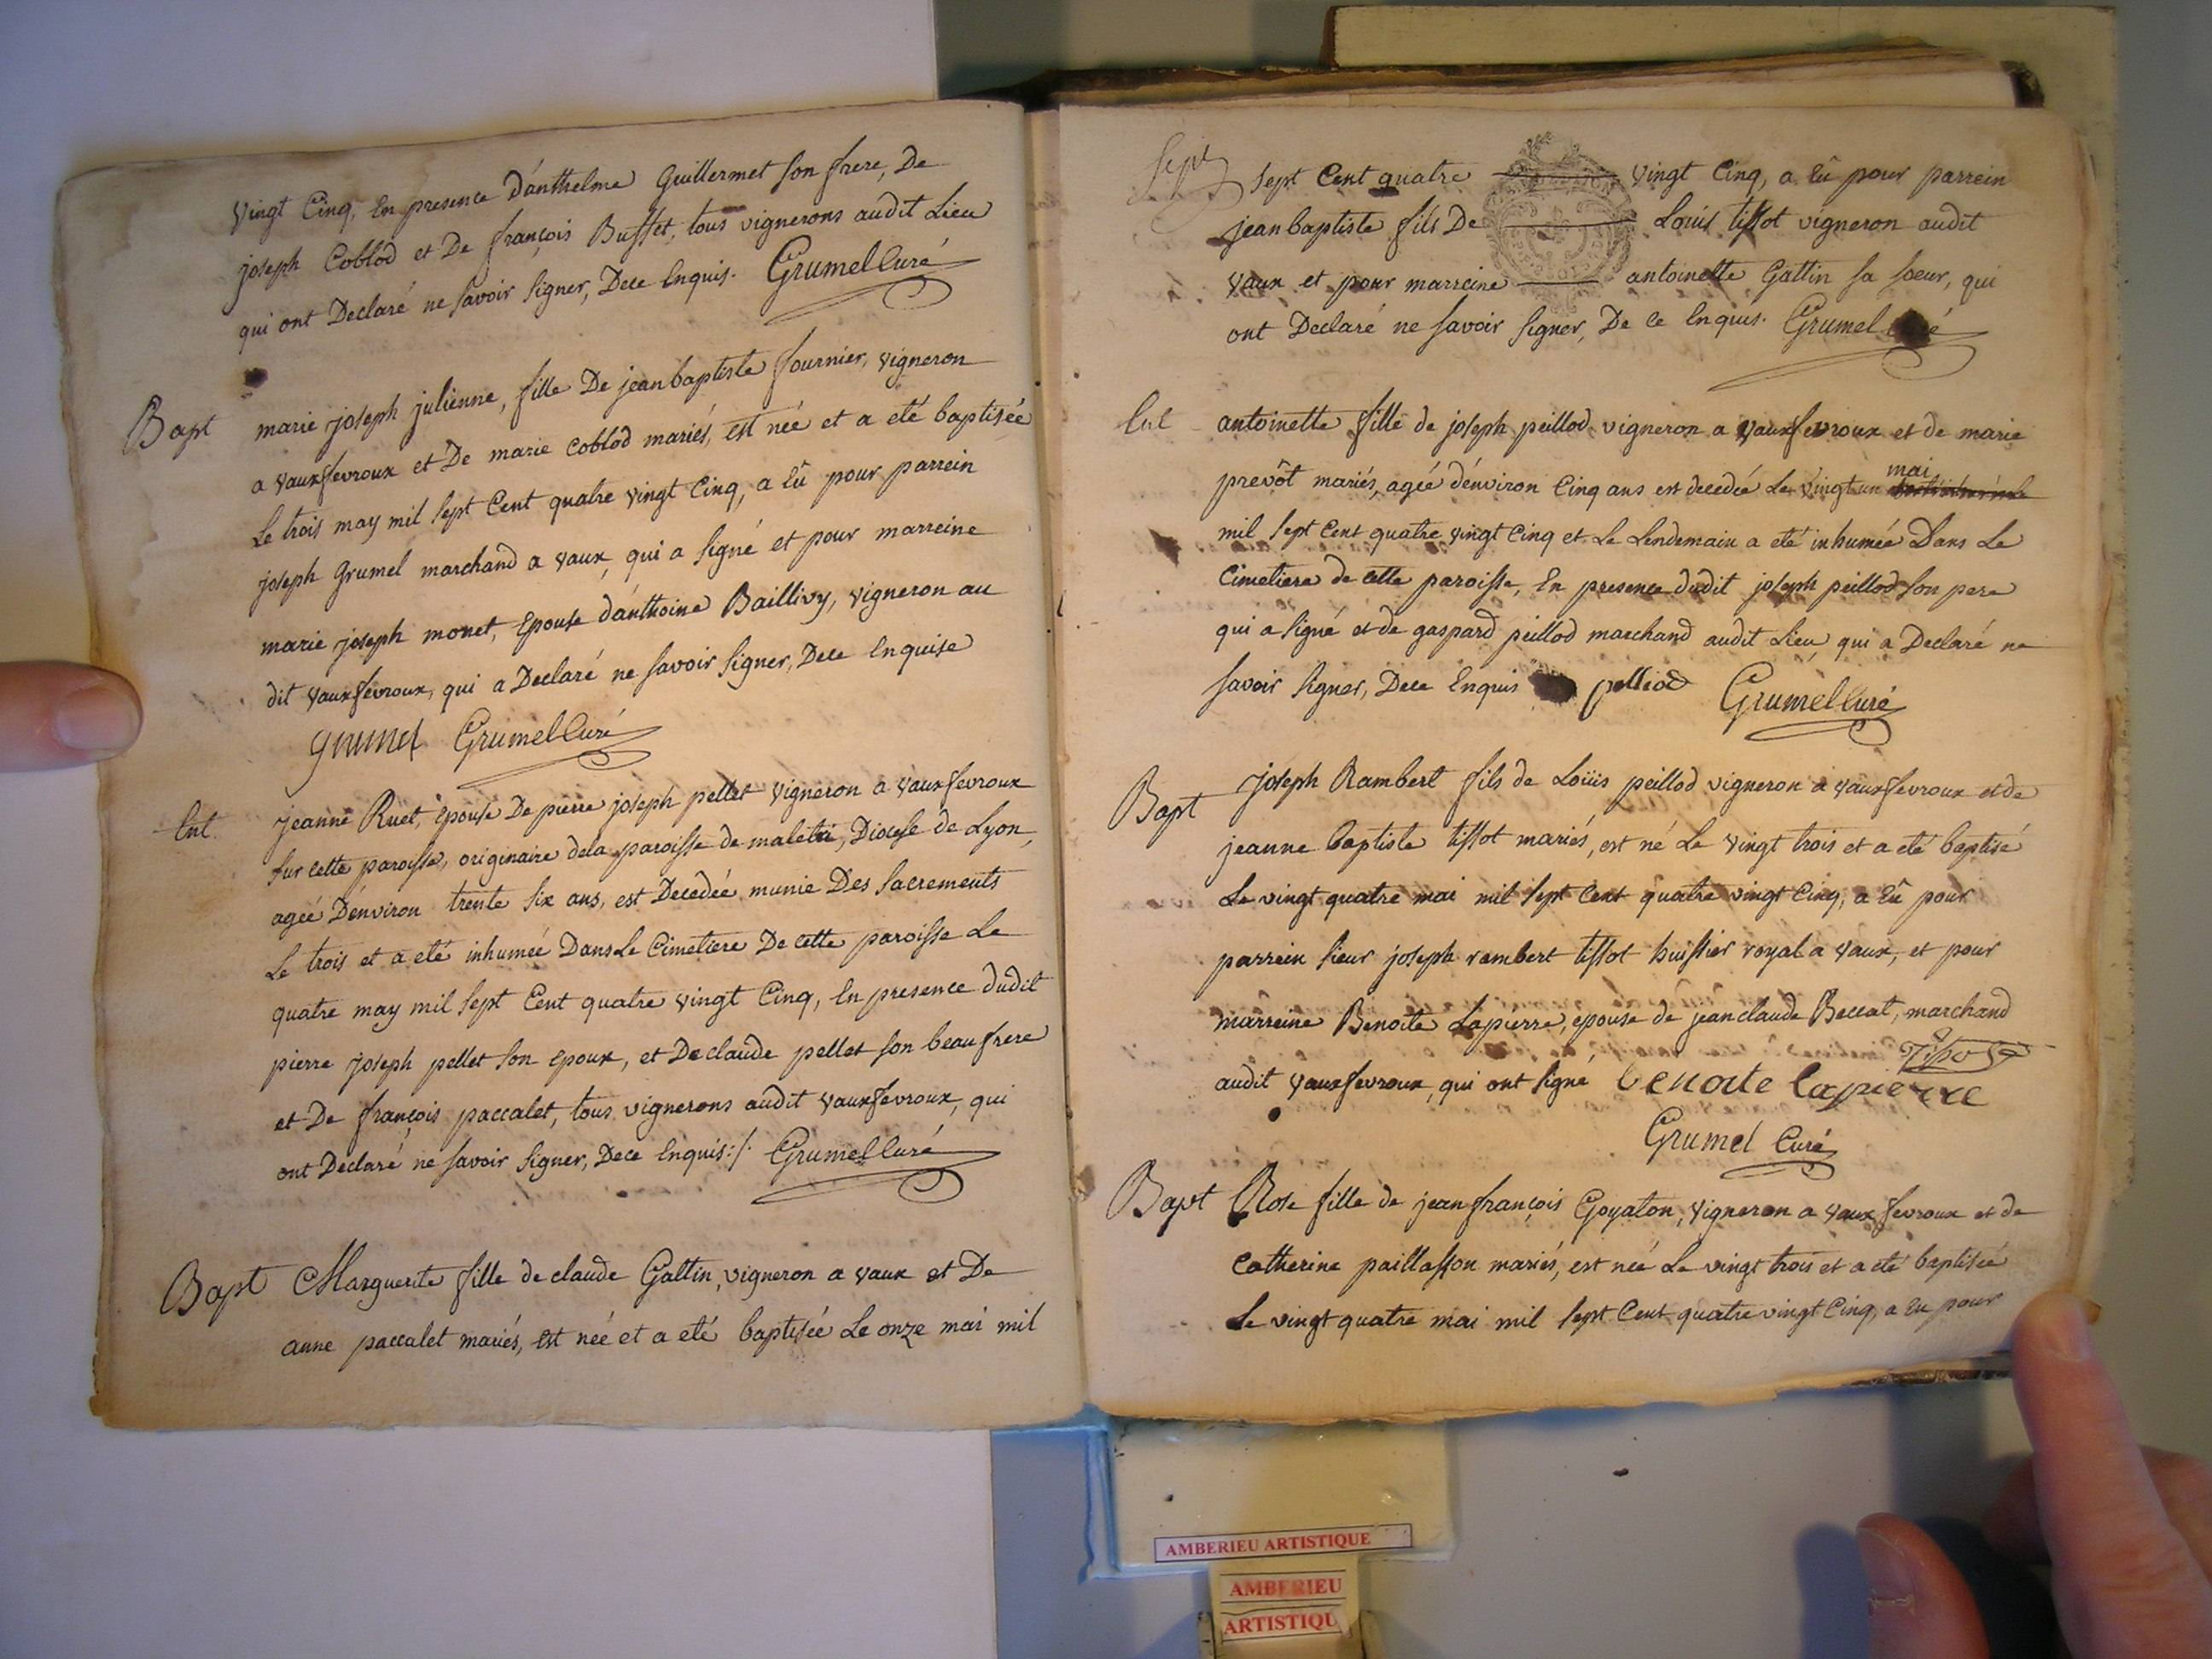 vingt Cinq, En presence D'anthelme Guillermet son frere, De
joseph Coblod et De françois Buffet, tous vignerons audit Lieu
qui ont Declaré ne savoir signer, Dece Enquis. Grumel Curé
Bapt marie joseph julienne, fille De jean baptiste fournier, vigneron
a vauxfevroux et De marie Coblod mariés, est née et a eté baptisée
Le trois may mil sept Cent quatre vingt Cinq, a Eû pour parrein
joseph Grumel marchand a vaux, qui a signé et pour marreine
marie joseph monet, Epouse d'anthoine Baillivy, vigneron au
dit vauxfevroux, qui a Declaré ne savoir signer, Dece Enquise
grumel Grumel Curé
Ent. jeanne Ruet, Epouse De pierre joseph pellet vigneron a vauxfevroux
sur cette paroisse, originaire dela paroisse de, Diocese de Lyon,
agée D'environ trente six ans, est Decedée munie Des sacrements
Le trois et a eté inhumée Dans Le Cimetiere De cette paroisse Le
quatre may mil sept Cent quatre vingt Cinq, En presence dudit
pierre joseph pellet son epoux, et De claude pellet son beau frere
et De françois paccalet, tous vignerons audit vauxfevroux, qui
ont Declaré ne savoir signer, Dece Enquis:/. Grumel Curé
Bapt Marguerite fille de claude Gattin, vigneron a vaux et De
anne paccalet mariés, est née et a eté baptisée Le onze mai mil
sept
sept Cent quatre vingt Cinq, a Eû pour parrein
jean baptiste fils De Louis tissot vigneron audit
vaux et pour marreine antoinette Gattin sa soeur, qui
ont Declaré ne savoir signer, De ce Enquis. Grumel Curé
Ent antoinette fille de joseph peillod vigneron a vauxfevroux et de marie
mai
prevôt mariés, agée d'environ Cinq ans est decedée Le vingt un
mil sept Cent quatre vingt Cinq et Le Lendemain a eté inhumée Dans Le
Cimetiere de cette paroisse, En presence dudit joseph peillod son pere
qui a signé et de gaspard peillod marchand audit Lieu qui a Declaré ne
savoir signer, Dece Enquis pelliod Grumel Curé
Bapt joseph Rambert fils de Loüis peillod vigneron a vauxfevroux et de
jeanne baptiste tissot mariés, est né Le vingt trois et a eté baptisé
Le vingt quatre mai mil sept Cent quatre vingt Cinq, a Eû pour
parrein sieur joseph rambert tissot huissier royal a vaux, et pour
marreine Benoite Lapierre, epouse de jean claude Beccat, marchand
Tissot
audit vauxfevroux, qui ont signé benoite lapierre
Grumel Curé
Bapt Rose fille de jean françois Goyaton, vigneron a vauxfevroux et de
Catherine paillasson mariés, est née Le vingt trois et a eté baptisée
Le vingt quatre mai mil sept Cent quatre vingt Cinq, a Eu pour
AMBERIEU ARTISTIQUE
AMBERIEU
ARTISTIQU